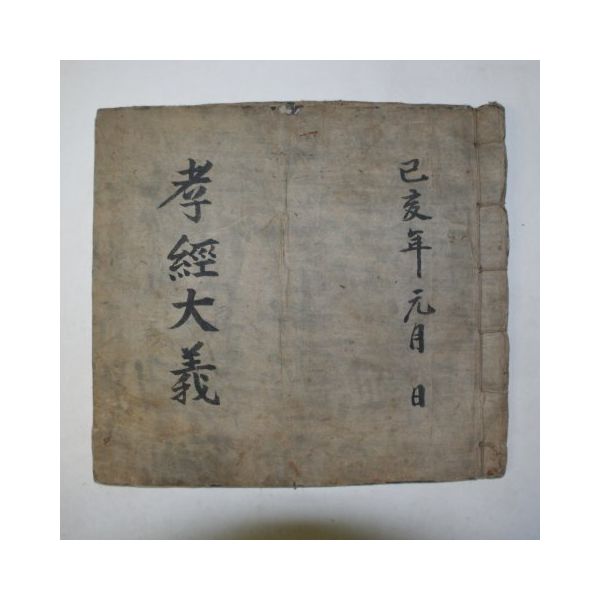 己亥年元月 日
孝經大義